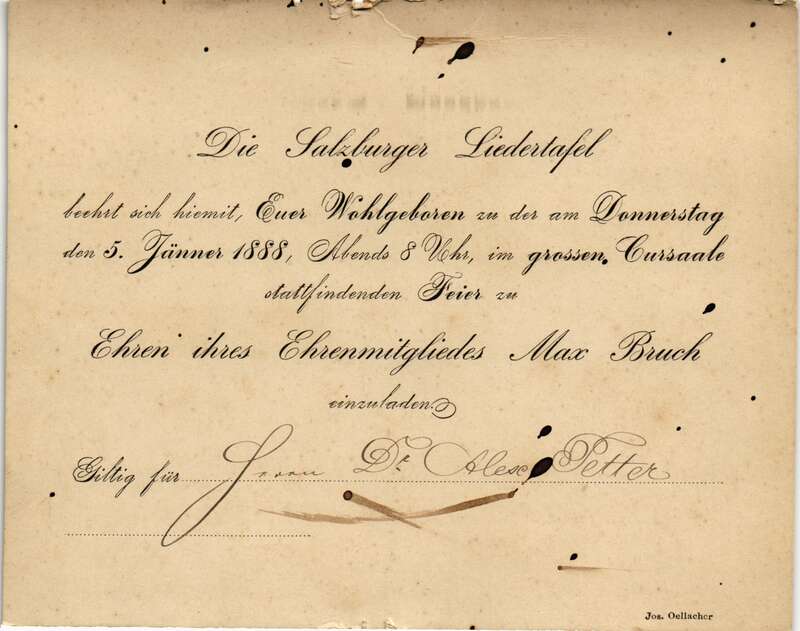 Die Salzburger Liedertafel
beehrt sich hiemit, Euer Wohlgeboren zu der am Donnerstag
den 5. Jänner 1888, Abends 8 Uhr, im grossen Cursaale
stattfindenden Feier zu
Ehren ihres Ehrenmitgliedes Max Bruch
einzuladen.
Giltig für Herrn Dr. Alex Petter
Jos. Oellacher